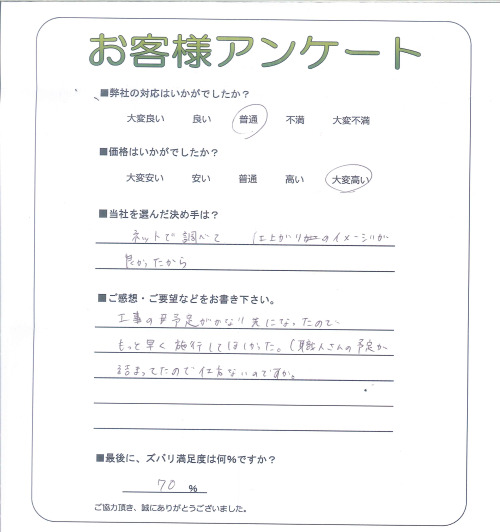 お客様アンケート
■弊社の対応はいかがでしたか？
大変良い 良い 普通 不満 大変不満
■価格はいかがでしたか？
大変安い 安い 普通 高い 大変高い
■当社を選んだ決め手は？
ネットで調べて 仕上がりのイメージが
良かったから
■ご感想・ご要望などをお書き下さい。
工事の予定がかなり先になったので
もっと早く施行してほしかった。(職人さんの予定が
詰まってたので仕方ないのですが。
■最後に、ズバリ満足度は何％ですか？
70 ％
ご協力頂き、誠にありがとうございました。